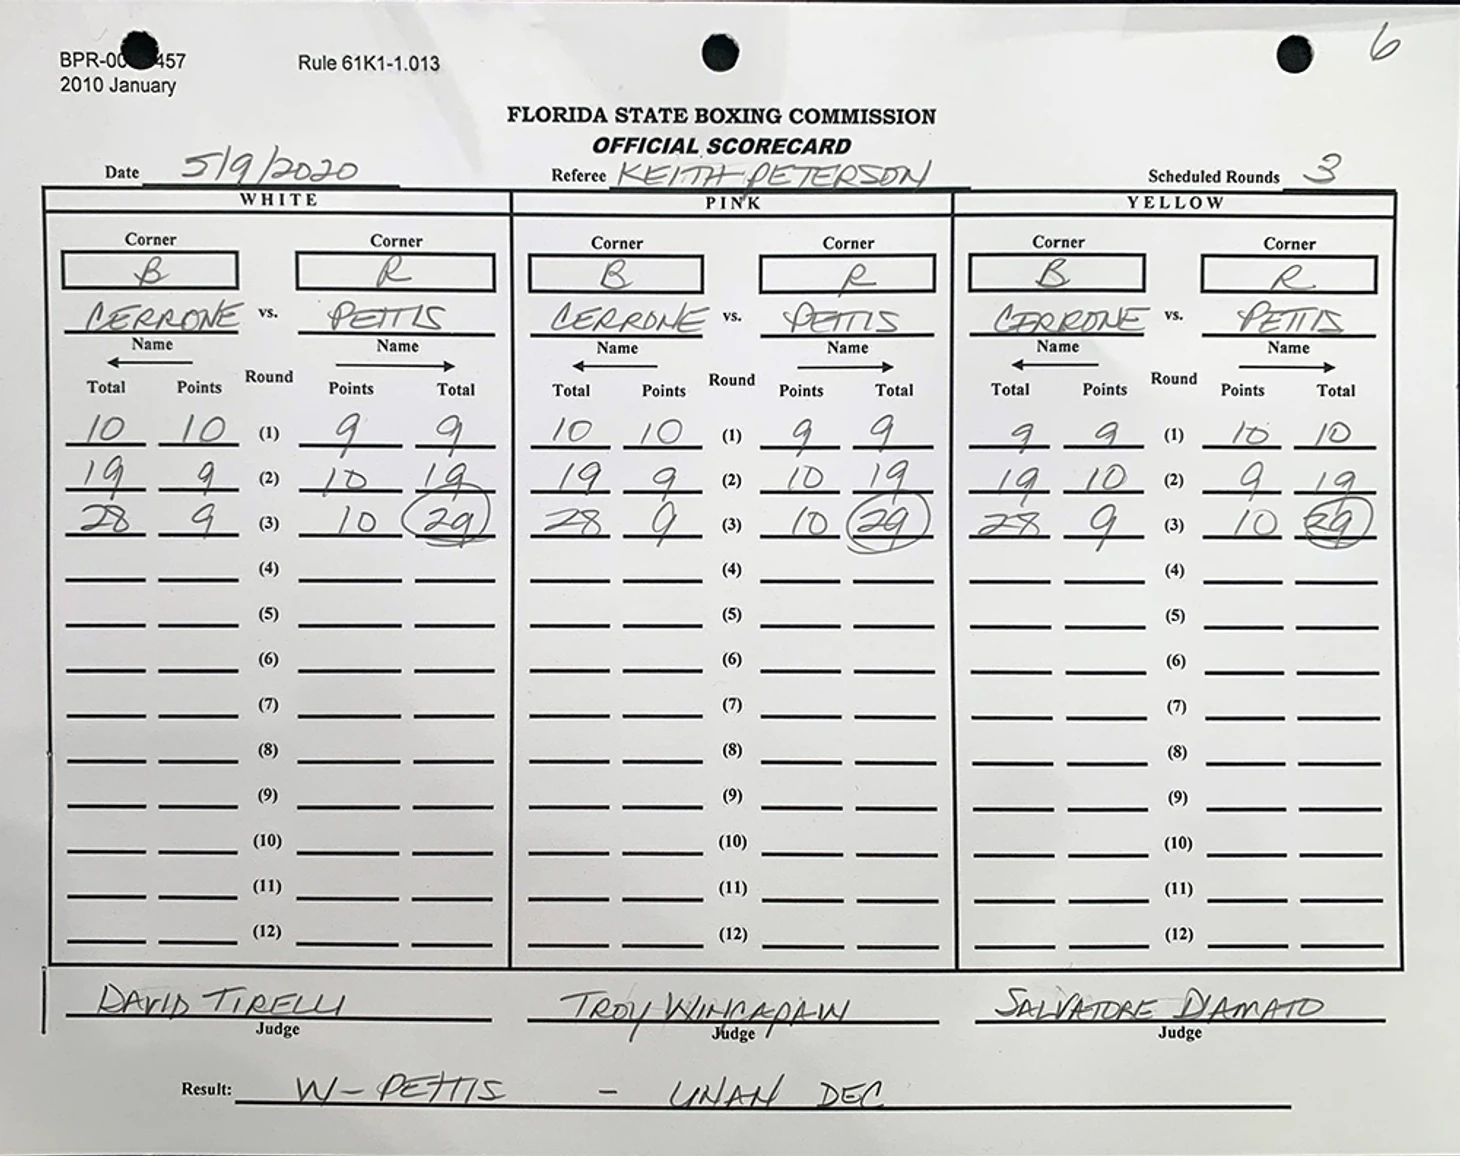 6
BPR-00 457 Rule 61K1-1.013
2010 January
FLORIDA STATE BOXING COMMISSION
OFFICIAL SCORECARD
Date 5/9/2020 Referee KEITH PETERSON Scheduled Rounds 3
WHITE PINK YELLOW
Corner Corner Corner Corner Corner Corner
B R B R B R
CERRONE vs. PETTIS CERRONE vs. PETTIS CERRONE vs. PETTIS
Name Name Name Name Name Name
Total Points Round Points Total Total Points Round Points Total Total Points Round Points Total
10 10 (1) 9 9 10 10 (1) 9 9 9 9 (1) 10 10
19 9 (2) 10 19 19 9 (2) 10 19 19 10 (2) 9 19
28 9 (3) 10 29 28 9 (3) 10 29 28 9 (3) 10 29
(4) (4) (4)
(5) (5) (5)
(6) (6) (6)
(7) (7) (7)
(8) (8) (8)
(9) (9) (9)
(10) (10) (10)
(11) (11) (11)
(12) (12) (12)
DAVID TIRELLI TROY WINCAPAW SALVATORE D'AMATO
Judge Judge Judge
Result: W - PETTIS - UNAN DEC